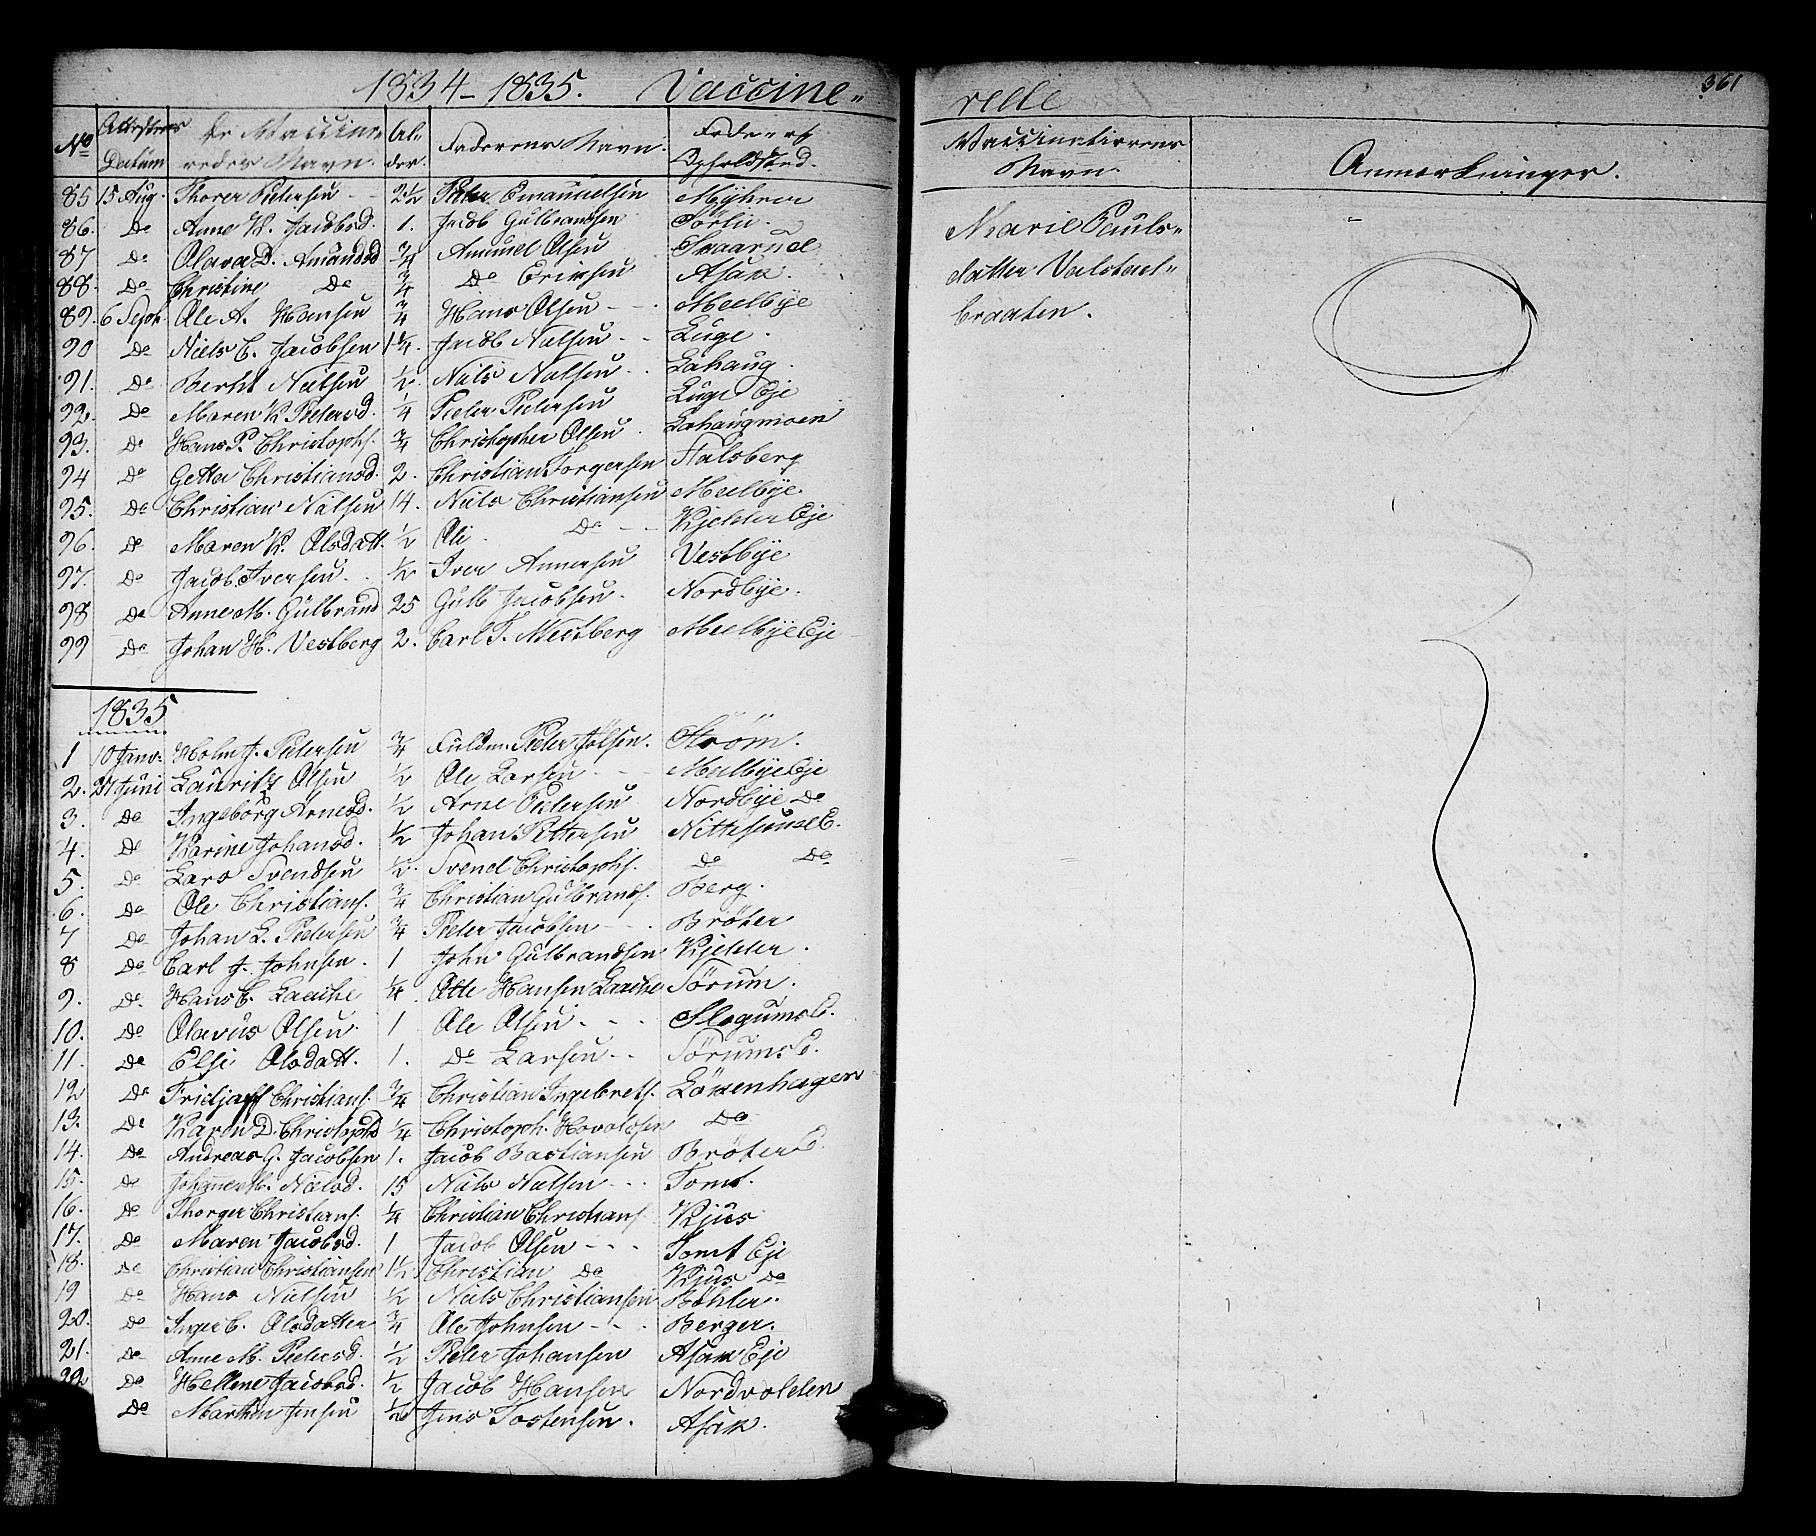 1834-1835. Vaccine-
relle
361
No Attestens Datum De Vaccine-redes Navn. Al-der. Faderens Navn. Fade-rs Opholdsted.
Vaccinatirens Navn. Anmærkninger.
85 15 Aug. Thorer Petersen 2½ Peter Emanuelsen Myhrer
86. Do Anne K. Jacobsd. 1. Jacob Gulbrandsen Sörlie
87 Do Olava D. Amundsd ¾ Amund Olsen Svaarud
88. Do Christine Do ¾ Do Eriksen Asak.
89. 6 Seph. Ole A. Hansen ¾ Hans Olsen Melbÿe
90 Do Niels C. Jacobsen 1¼. Jacob Nilsen Luge.
91. Do Berht Nilsen ½. Niels Nilsen Lahaug.
92. Do Maren K. Petersd. ¼ Peter Petersen Luge Eje
93. Do Hans P. Christophs. ¾ Christopher Olsen Lahaugmoen
94 Do Getta Christiansd. 2. Christian Torgersen Falsberg
95. Do Christian Nilsen 14. Niels Christiansen Melbÿe
96. Do Maren K. Olsdatt. ½ Ole Do Kjelder Eje
97. Do Jacob Iversen ½ Iver Annersen Vestbÿe
98 Do Anne M. Gulbrand 25 Gulb Jacobsen. Nordbÿe.
99 Do Johan H. Vestberg 2. Carl F. Mestberg Melbÿe Eje
Marie Pauls-
datter Valstad-
braaten.
1835
1 10 Janr. Holm J. Petersen ¾ Peter Jölsen. Ström.
2. 27 Juni Lauritz Olsen ½ Ole Larsen Melbÿe Eje
3. Do Ingeborg Arnesd. ½ Arne Petersen Nordbÿe Do
4. Do Karine Johansd. ½ Johan Pettersen
5. Do Lars Svendsen ½. Svend Christophs. Do Do
6. Do Ole Christians. ¾ Christian Gulbrands. Berg.
7 Do Johan L. Petersen ¾ Peter Jacobsen Bröter
8 Do Carl J. Johnsen. 1 John Gulbrandsen Kjelder.
9. Do Hans C. Laache ¼ Atte Hansen Laache Sörum.
10. Do Olavus Olsen. 1 Ole Olsen Slogums E.
11. Do Elsi Olsdatt. 1. Do Larsen Sörums E.
12 Do Fridjoff Christians. ¾ Christian Ingebrets. Lövenhagen
13. Do Karen D. Christophd ¼ Christoph. Hovoldsen Do
14. Do Andreas G. Jacobsen 1. Jacob Bastiansen Bröter E.
15. Do Johanne M. Nielsd. 15 Niels Nilsen Tomt.
16. Do Thorger Christians. ¼ Christian Christians. Kjus
17. Do Maren Jacobsd. 1 Jacob Olsen Tomt Eje
18. Do Christian Christiansen 1½ Christian Do Kjus Do
19 Do Hans Nielsen ½ Niels Christiansen Böhler.
20. Do Inger C. Olsdatter ¾ Ole Johnsen Berger.
21. Do Anne M. Petersd. ½ Peter Johansen Asak Eje
22 Do Hellene Jacobsd. ½ Jacob Hansen Nordvolden
Do Marthin Jensen ½ Jens Tostensen. Asak.